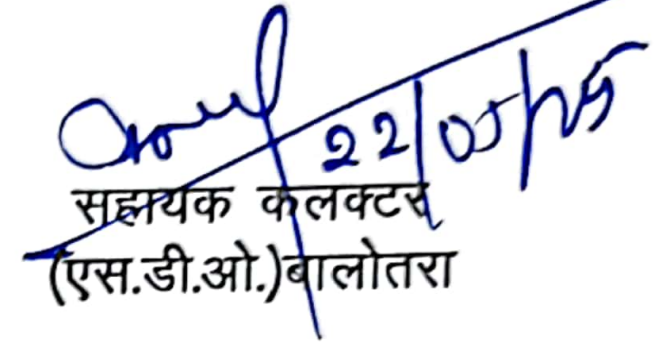 22/05/25
सहायक कलक्टर
(एस.डी.ओ.)बालोतरा